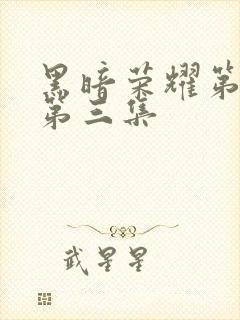 黑暗荣耀第
第三集
武星星